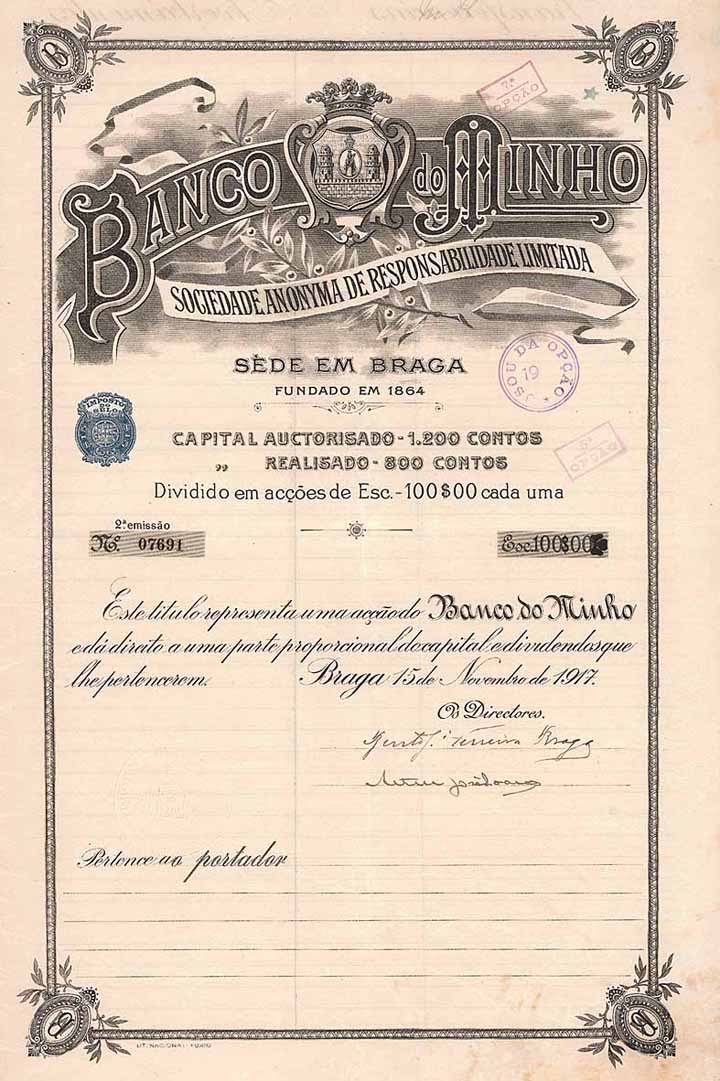 7ª
OPÇÃO
BANCO do MINHO
SOCIEDADE ANONYMA DE RESPONSABILIDADE LIMITADA
SÉDE EM BRAGA
FUNDADO EM 1864
USOU DA OPÇÃO
19
IMPOSTO
DO
SELO
CAPITAL AUCTORISADO - 1.200 CONTOS
„ REALISADO - 800 CONTOS
6ª
OPÇÃO
Dividido em acções de Esc. - 100$00 cada uma
2ª emissão
Nº. 07691
Esc. 100$00
Este titulo representa uma acção do Banco do Minho
e dá direito a uma parte proporcional do capital e dividendos que
lhe pertencerem. Braga 15 de Novembro de 1917.
Os Directores.
Ferreira Braga
Pertence ao portador
LIT. NACIONAL - PORTO